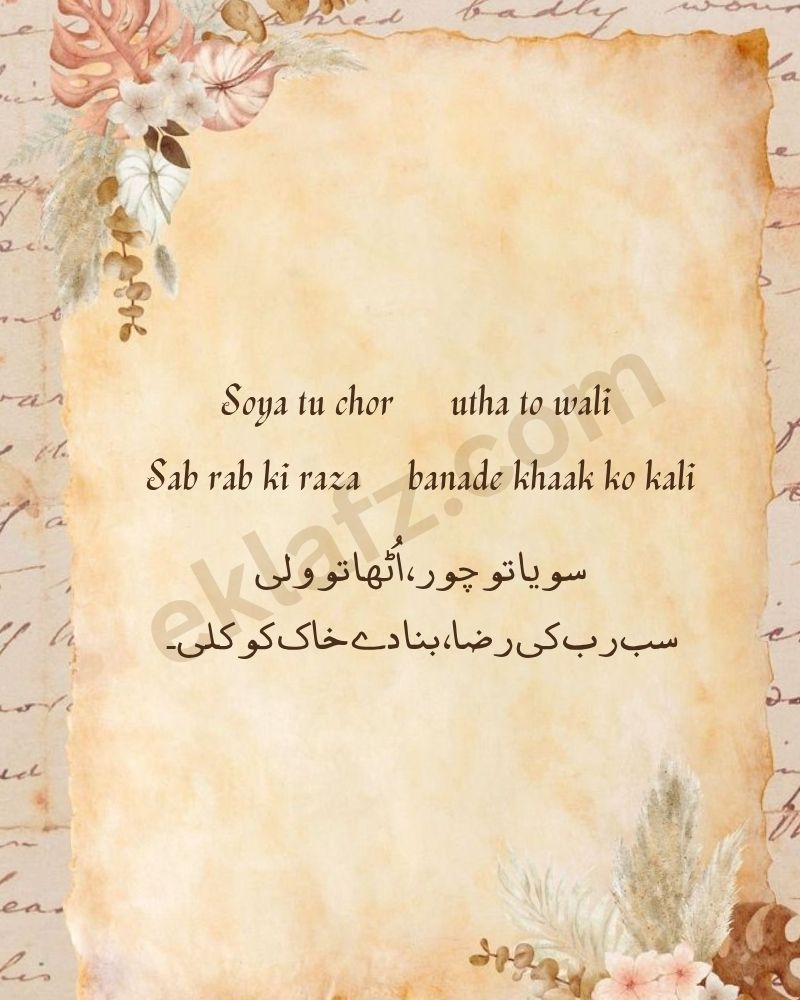 Soya tu chor utha to wali
Sab rab ki raza banade khaak ko kali
سویا تو چور، اُٹھا تو ولی
سب رب کی رضا، بنا دے خاک کو کلی۔
eklafz.com